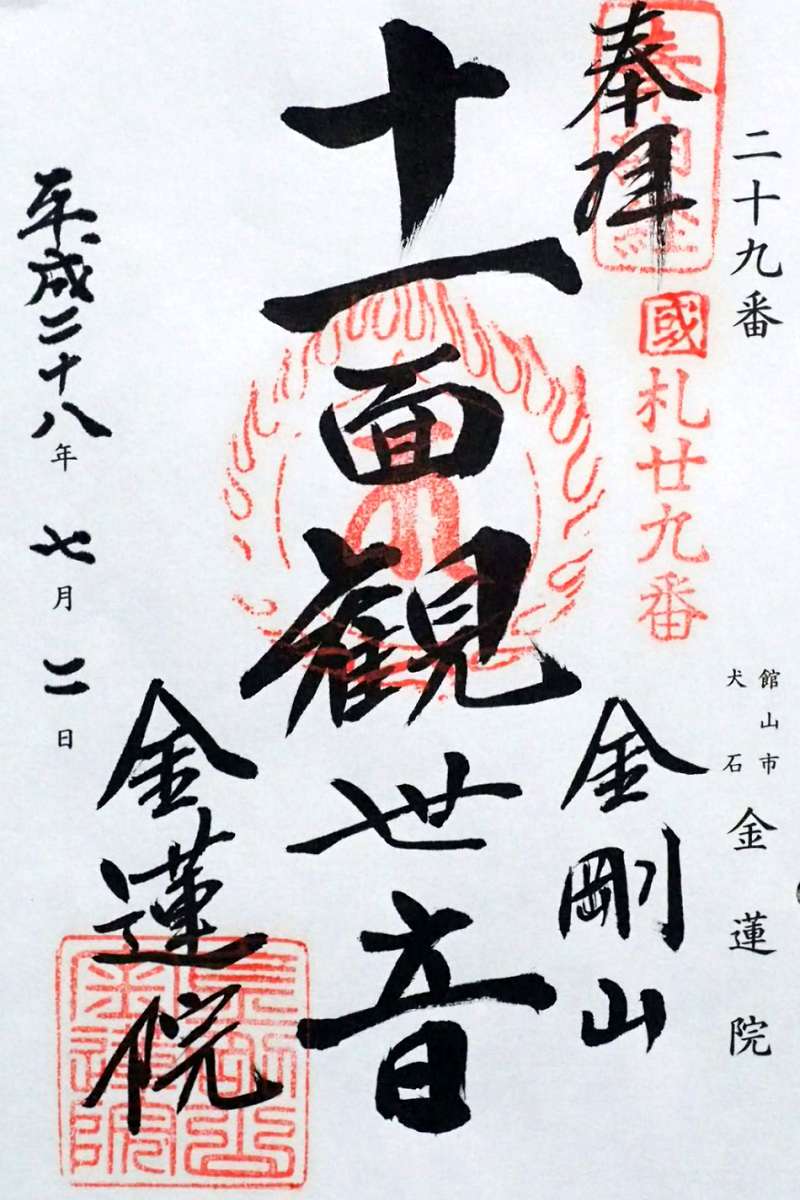 二十九番
館山市
犬石
金蓮院
奉拝
國札廿九番
金剛山
十一面観世音
平成二十八年七月二日
金蓮院
金剛山
金蓮院